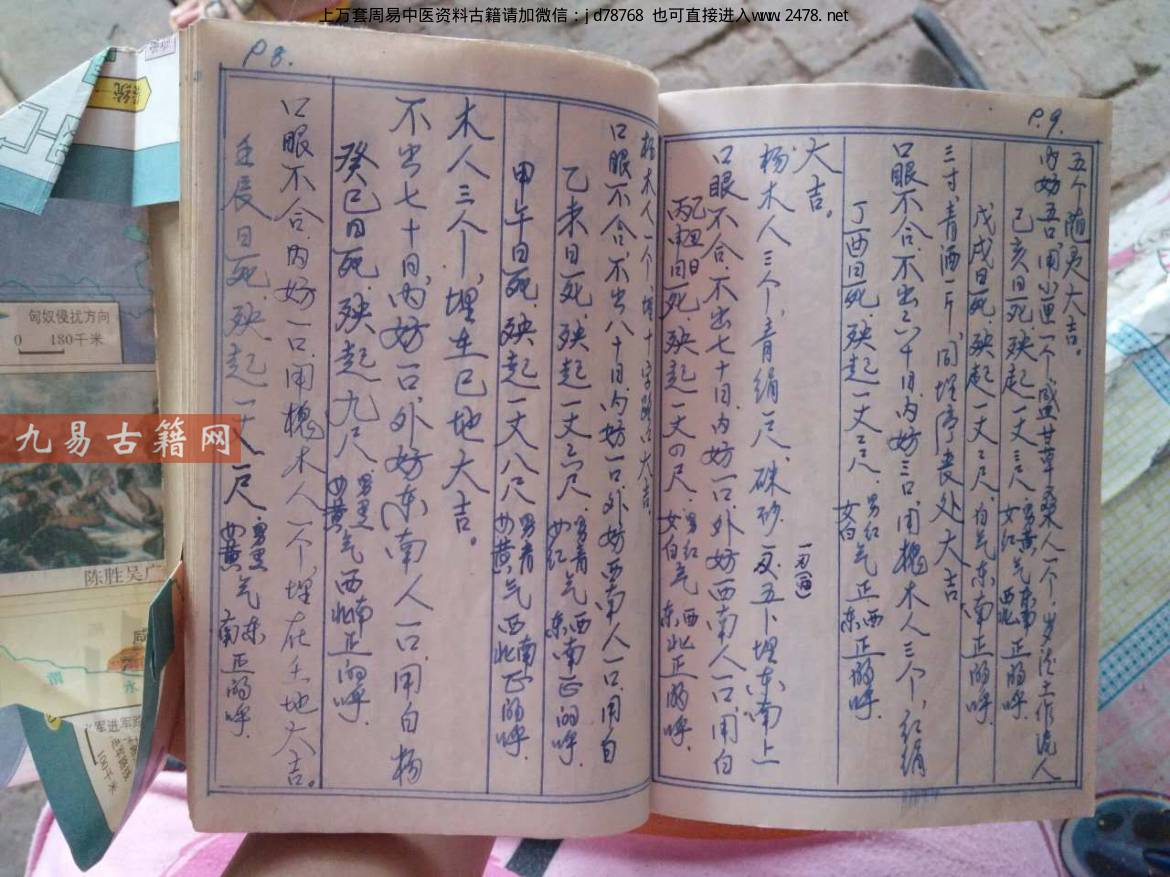 上万套周易中医资料古籍请加微信：jd78768 也可直接进入www.2478.net
P8.
壬辰日死,殃起一丈一尺 男黑女黄气 东南正的呼.
口眼不合,内妨一口,用槐木人一个,埋在壬地大吉。
癸巳日死,殃起九尺 男黑女黄气西南北正的呼.
不出七十日,内妨一口,外妨东南人一口,用白杨
木人三个,埋在巳地大吉。
甲午日死,殃起一丈八尺 男青女黄气西南北正的呼.
乙未日死,殃起一丈六尺 男青女红气 东南正的呼.
口眼不合,不出八十日内妨一口外妨西南人一口,用白
杨木人一个,埋十字路口大吉.
P.9.
丙申日死,殃起一丈四尺 男红女白气 西北东正的呼.
口眼不合,不出七十日内妨一口,外妨西南人一口,用白
杨木人三个,青绢一尺,硃砂一 五卜埋东南上
大吉。
丁酉日死,殃起一丈二尺 男红女白气 西东正的呼.
口眼不合,不出六十日,内妨三口,用槐木人三个,红绢
三寸,青酒一斤,同埋停丧处大吉
戊戌日死,殃起一丈二尺,白气东南正的呼.
己亥日死,殃起一丈三尺 男黄女红气 东南西北正的呼.
内妨五口,用小匣一个盛甘草桑人一个,岁德土作泥人
五个随灵大吉。
匈奴侵扰方向
0 180千米
陈胜吴广
咸
渭
水
军进军路
100千米
九易古籍网